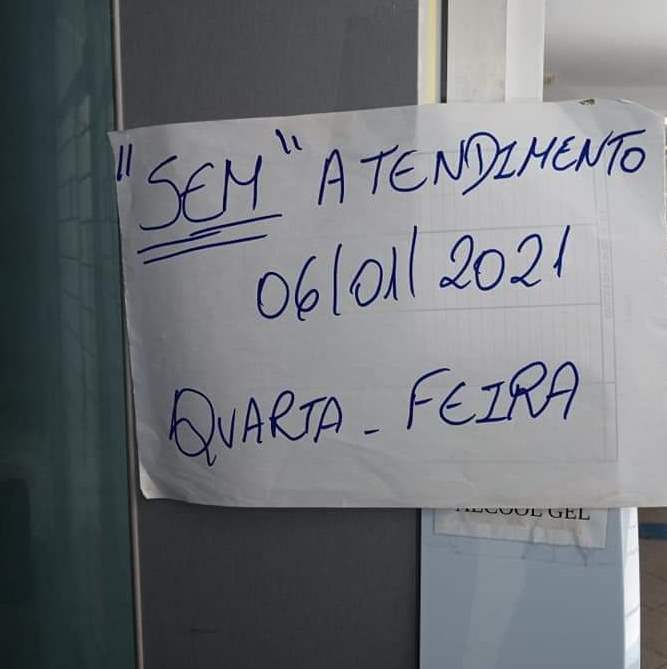 "SEM" ATENDIMENTO
06/01/2021
QUARTA-FEIRA
ÁLCOOL GEL